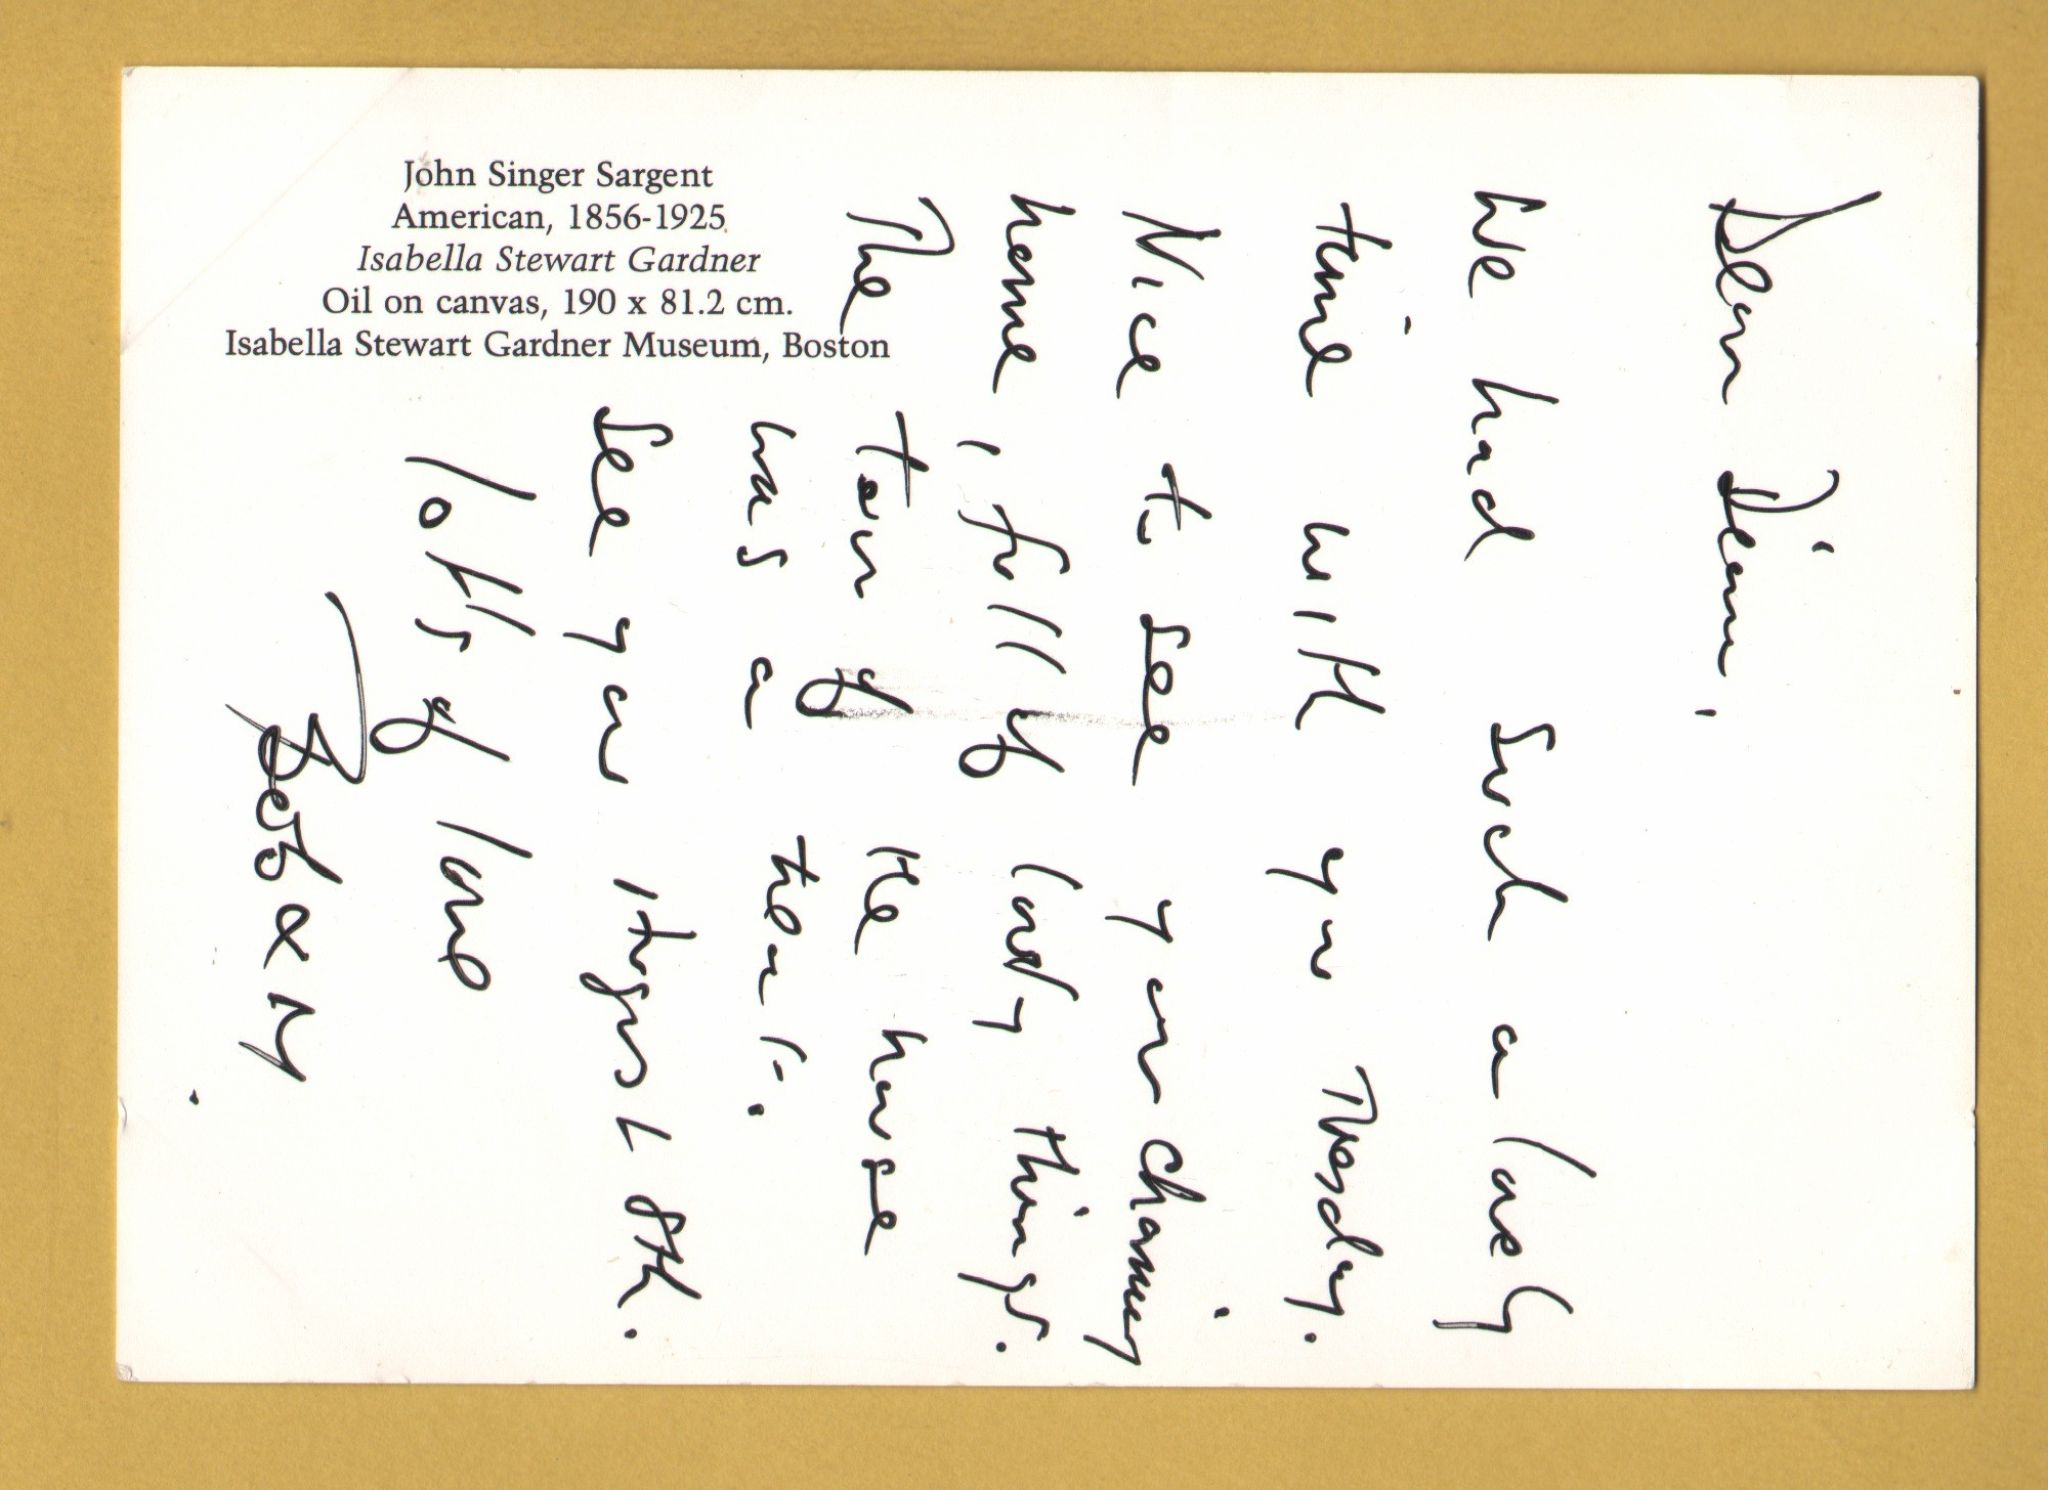 John Singer Sargent
American, 1856-1925
Isabella Stewart Gardner
Oil on canvas, 190 x 81.2 cm.
Isabella Stewart Gardner Museum, Boston
Dear
We had such a lovely
time with you Tuesday.
Nice to see your charming
home, full of lovely things.
The tour of the house
was a treat.
See you August 8th.
lotts of love
Bob & M